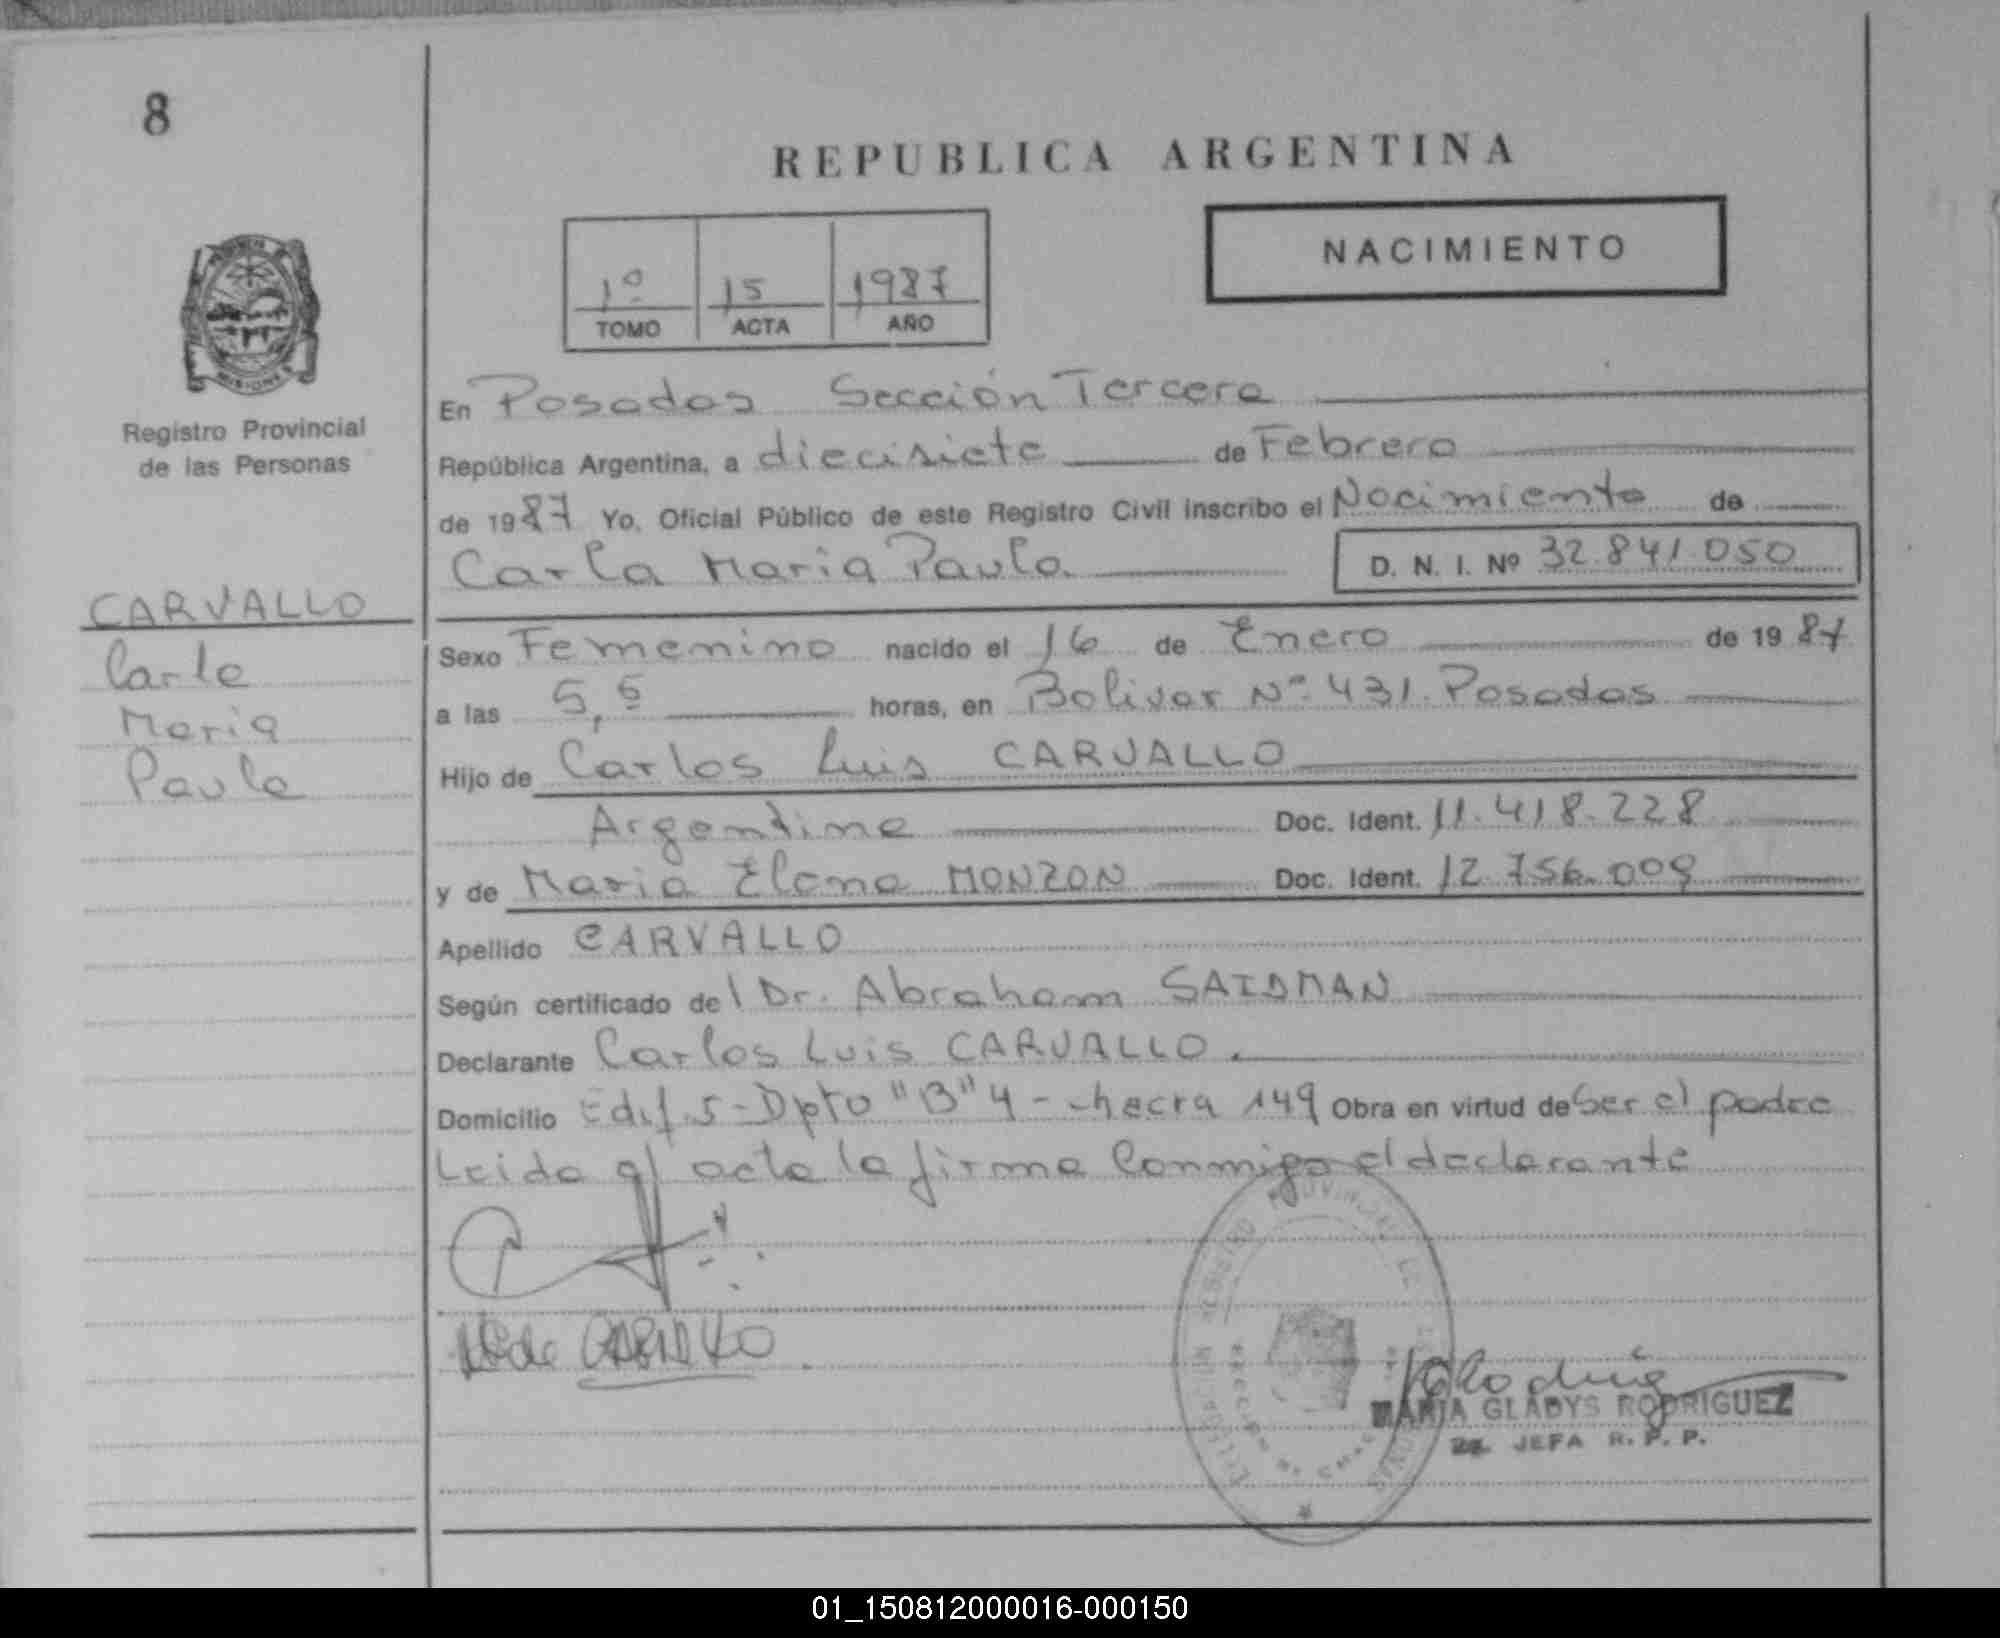 8
REPUBLICA ARGENTINA
NACIMIENTO
1º 15 1987
TOMO ACTA AÑO
MISIONES
Registro Provincial
de las Personas
CARVALLO
Carla
Maria
Paula
En Posadas Sección Tercera
República Argentina, a diecisiete de Febrero
de 1987 Yo, Oficial Público de este Registro Civil inscribo el Nacimiento de
Carla Maria Paula D. N. I. Nº 32.841.050
Sexo Femenino nacido el 16 de Enero de 1987
a las 5,5 horas, en Bolivar Nº 431. Posadas
Hijo de Carlos Luis CARVALLO
Argentino Doc. Ident. 11.418.228
y de Maria Elena MONZON Doc. Ident. 12.756.009
Apellido CARVALLO
Según certificado del Dr. Abraham SAIDMAN
Declarante Carlos Luis CARVALLO.
Domicilio Edif. 5-Dpto "B" 4 - chacra 149 Obra en virtud de Ser el padre
Leida el acta la firma Conmigo el declarante
MARIA GLADYS RODRIGUEZ
JEFA R. P. P.
01_150812000016-000150